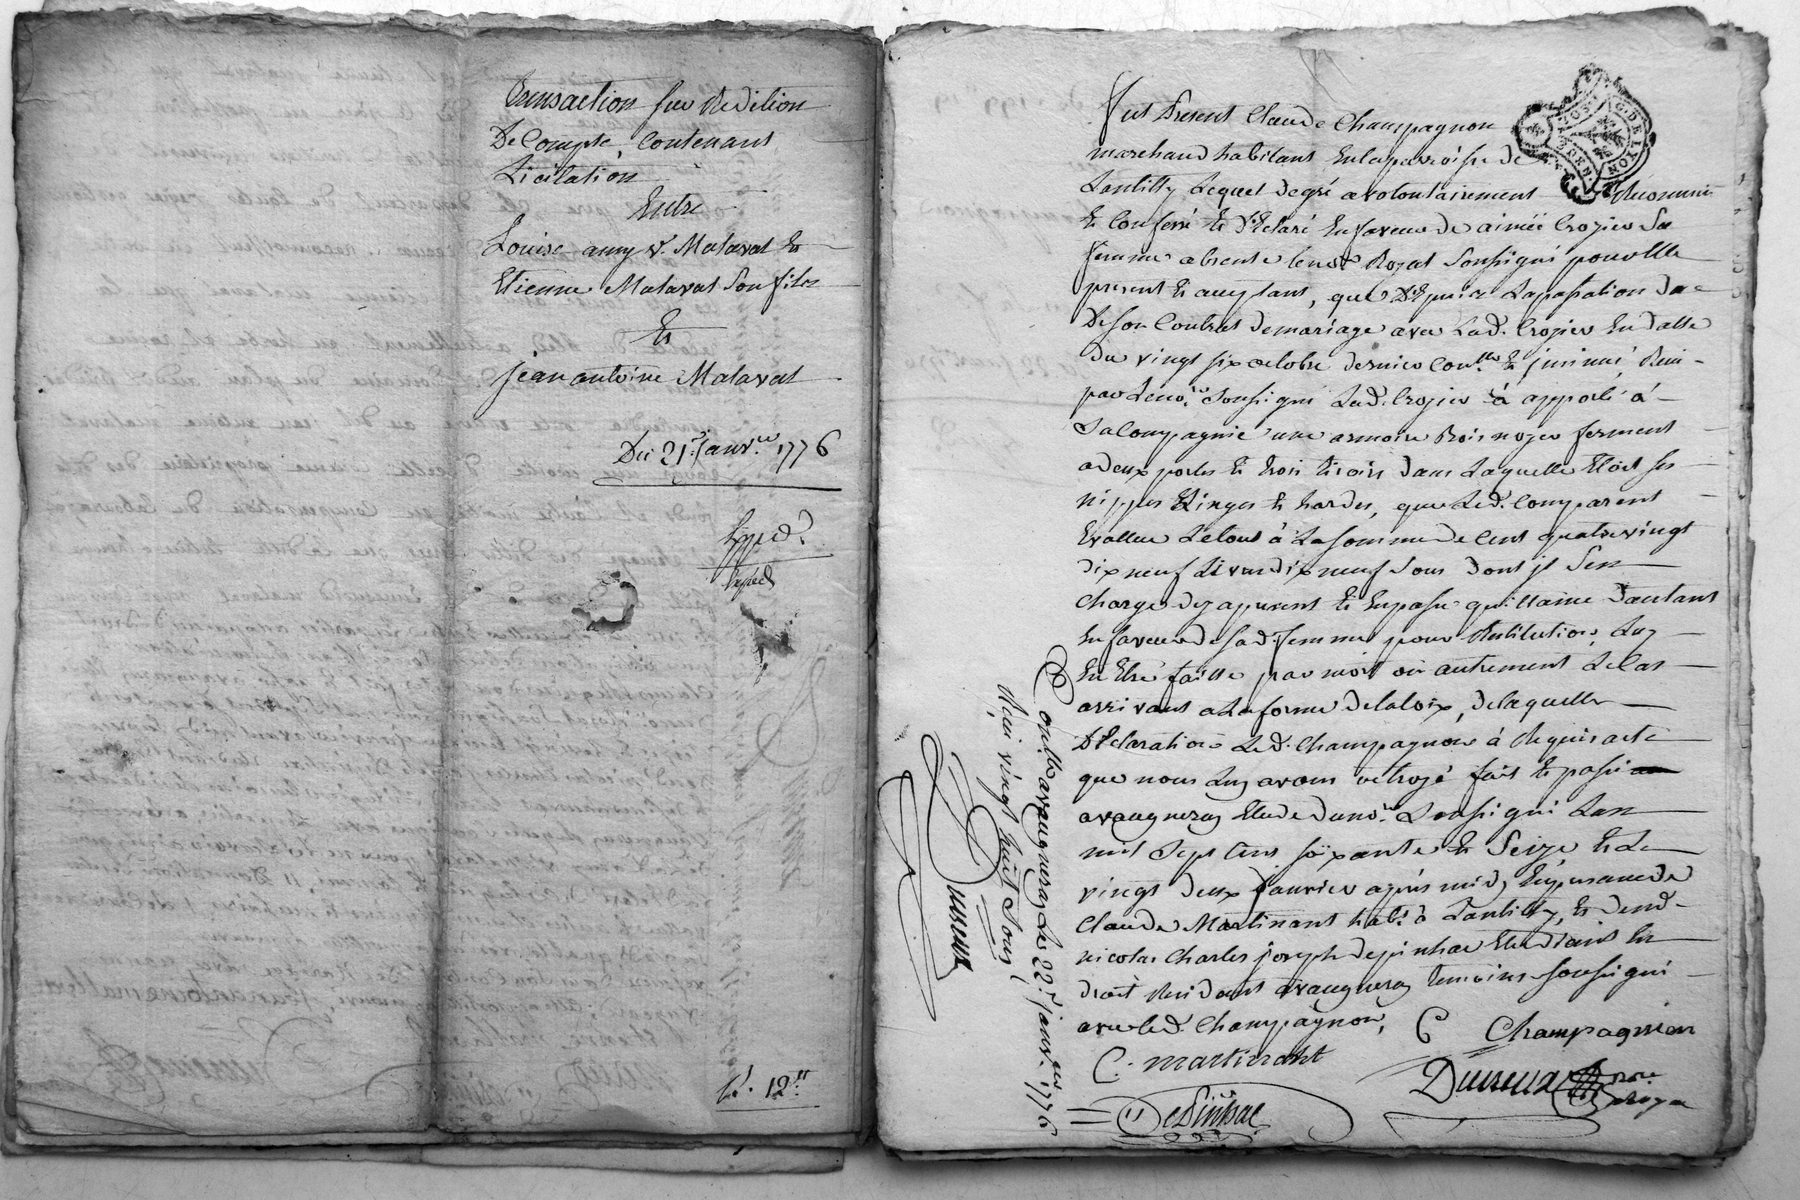 Transaction sur Redition
De Compte, Contenant
Licitation
Entre
Louise amy v.e Malaval Et
Etienne Malaval Son fils
Et
jean antoine Malaval
Du 21.e janv.er 1776
Expéd.
12.tt
Fut Present Claude Champagnon
marchand habitant En la parroisse de
Lantilly Lequel de gré a volontairement Reconnu
Et Confessé Et Déclaré En faveur de aimée Crozier Sa
femme absente le no.re Royal Soussigné pour Elle
present Et aceptant, que Depuis La passation du
De Son Contrat de mariage avec Lad. Crozier En datte
du vingt six octobre dernier Con.llé Et insinué, Reçu
par Le no.re Soussigné Lad. Crozier à apporté à
Sa Compagnie une armoire Bois noyer ferment
a deux portes Et trois tiroirs dans Laquelle Etoit ses
nippes Linges Et hardes, que Led. Comparent
Evallue Le tout à La Somme de Cent quatre vingt
dix neuf Livres dix neuf Sous dont jl S'en
Charge dez apresent Et En passe quittance d'autant
En faveur de Sad. femme pour Restitution Luy
En Etre faitte par mort ou autrement Le Cas
arrivant a La forme de la loix, de laquelle
Déclaration Led. Champagnon à Requis acte
que nous Luy avons octroyé fait Et passé
avaugneray Etude du no.re Soussigné L'an
mil Sept Cens soixante Et Seize Et Le
vingt deux Janvier après midy En presance de
Claude Martinant hab.t à Lantilly, Et de m.e
nicolas Charles joseph depinhac Etudiant En
droit Residant avaugneray temoins soussignés
avec led. Champagnon,
C Champagnion
C. martinant
DePinhac
Duvreux no.re royal
Con.llé avaugneray Le 22.e janv.er 1776
Reçu vingt huit Sous
Duvreux